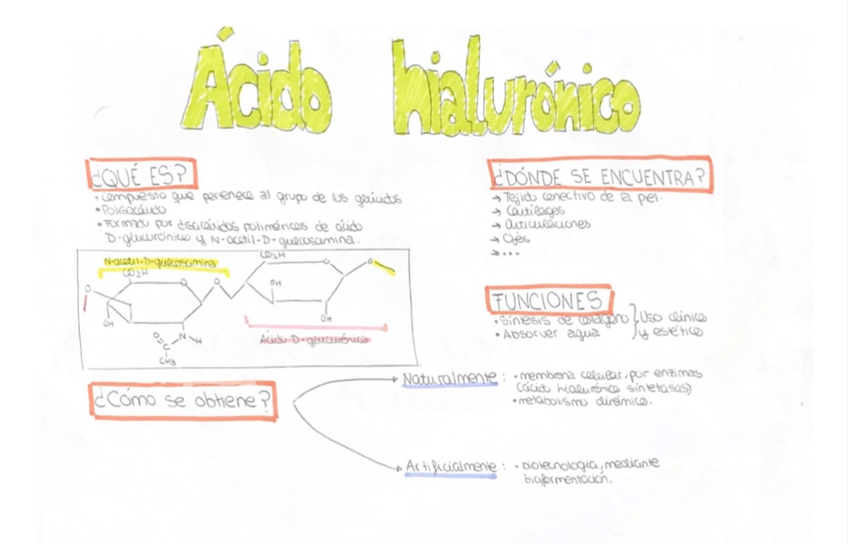 Ácido hialurónico
¿QUÉ ES?
• Compuesto que pertenece al grupo de los glúcidos
• Polisacárido
• Formado por disacáridos poliméricos de ácido
D-glucurónico y N-acetil-D-glucosamina.
N-acetil-D-glucosamina
CO₂H
CO₂H
O
O
O
O
O
OH
OH
OH
N
H
O
C
CH₃
Ácido D-glucurónico
¿DÓNDE SE ENCUENTRA?
→ Tejido conectivo de la piel.
→ Cartílagos
→ Articulaciones
→ Ojos
→ ...
FUNCIONES
• Síntesis de colágeno } Uso clínico
• Absorver agua y estético
¿Cómo se obtiene?
Naturalmente: • membrana celular, por enzimas
(ácido hialurónico sintetasas)
• metabolismo dinámico.
Artificialmente: • biotecnología, mediante
biofermentación.